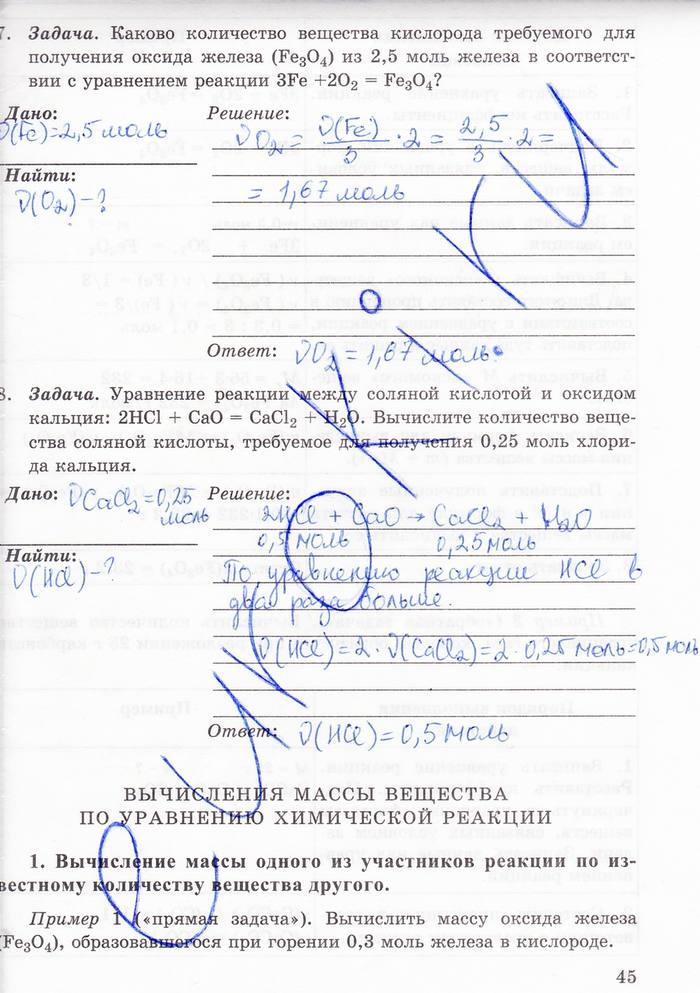 7. Задача. Каково количество вещества кислорода требуемого для
получения оксида железа (Fe₃O₄) из 2,5 моль железа в соответст-
вии с уравнением реакции 3Fe +2O₂ = Fe₃O₄?
Дано: Решение:
ν(Fe)=2,5 моль νO₂ = ν(Fe)/3 · 2 = 2,5/3 · 2 =
Найти:
ν(O₂)-? = 1,67 моль
Ответ: νO₂ = 1,67 моль.
8. Задача. Уравнение реакции между соляной кислотой и оксидом
кальция: 2HCl + CaO = CaCl₂ + H₂O. Вычислите количество веще-
ства соляной кислоты, требуемое для получения 0,25 моль хлори-
да кальция.
Дано: νCaCl₂=0,25 моль Решение:
2HCl + CaO → CaCl₂ + H₂O
0,5 моль 0,25 моль
Найти:
ν(HCl)-? По уравнению реакции HCl в
два раза больше.
ν(HCl)=2·ν(CaCl₂)=2·0,25 моль=0,5 моль
Ответ: ν(HCl)=0,5 моль
ВЫЧИСЛЕНИЯ МАССЫ ВЕЩЕСТВА
ПО УРАВНЕНИЮ ХИМИЧЕСКОЙ РЕАКЦИИ
1. Вычисление массы одного из участников реакции по из-
вестному количеству вещества другого.
Пример 1 («прямая задача»). Вычислить массу оксида железа
(Fe₃O₄), образовавшегося при горении 0,3 моль железа в кислороде.
45